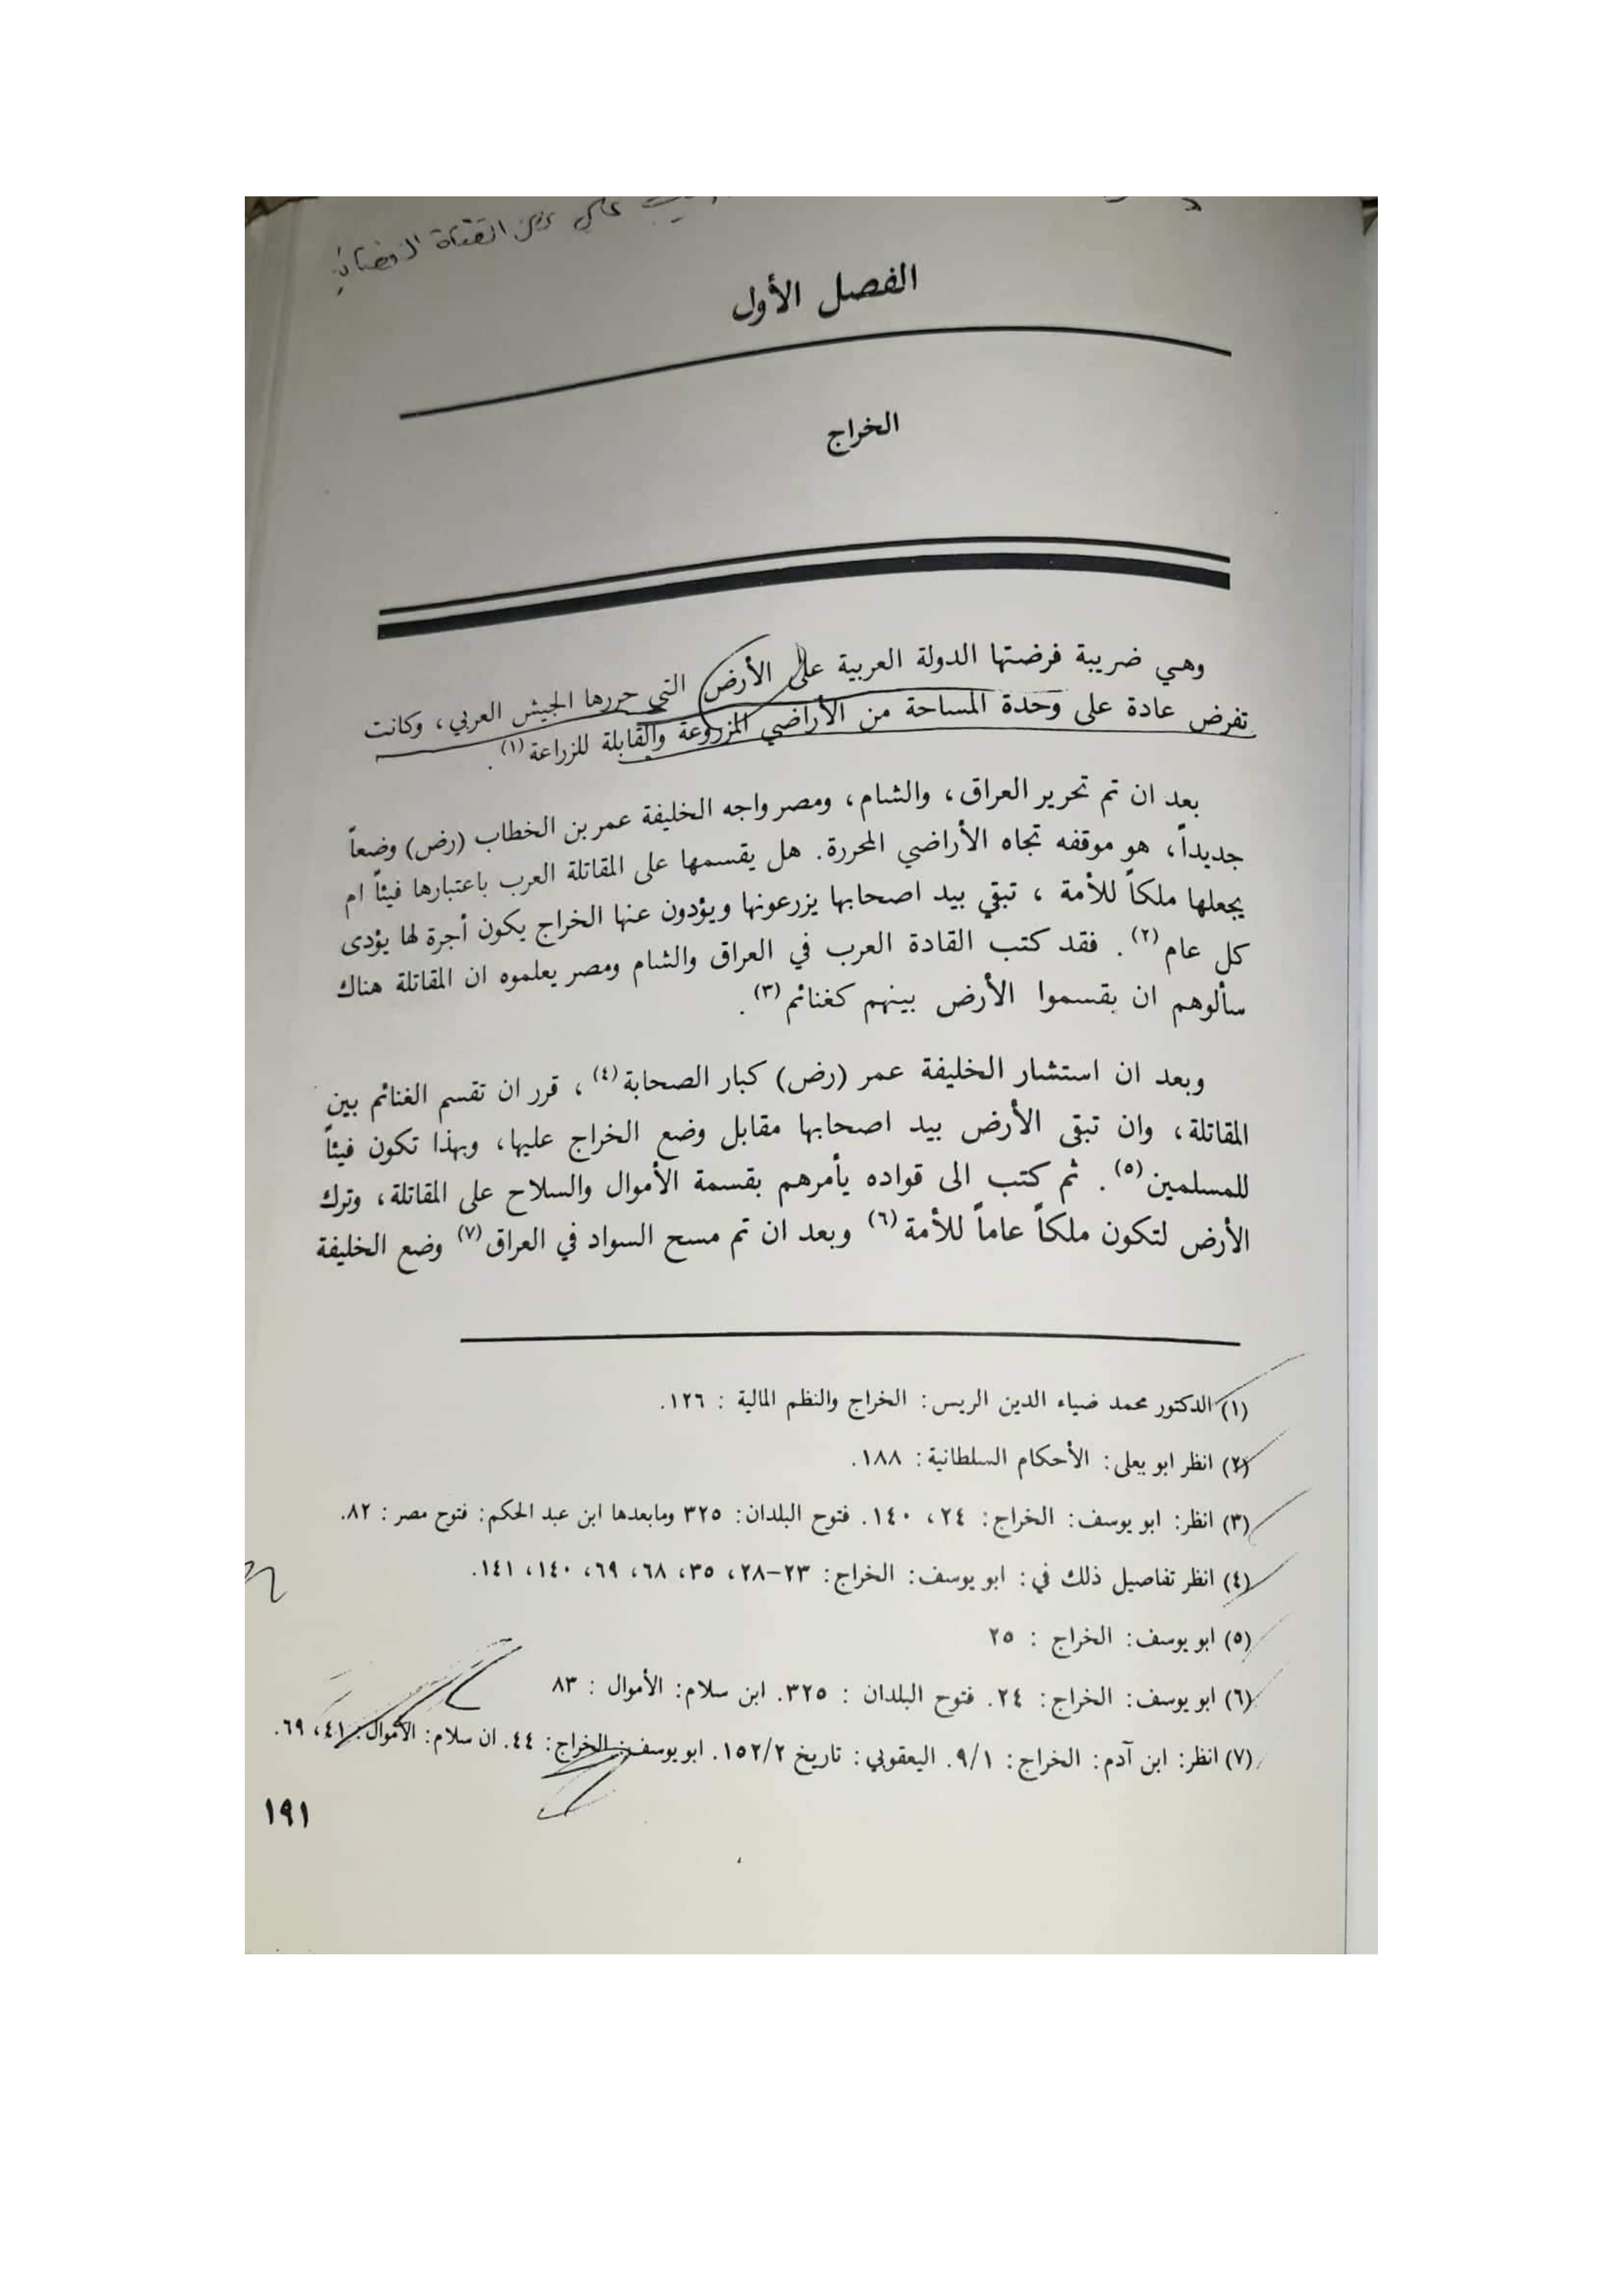 على
الفصل الأول
الخراج
وهي ضريبة فرضتها الدولة العربية على الأرض التي حررها الجيش العربي، وكانت
تفرض عادة على وحدة المساحة من الأراضي المزروعة والقابلة للزراعة (١).
بعد ان تم تحرير العراق، والشام، ومصر واجه الخليفة عمر بن الخطاب (رض) وضعاً
جديداً، هو موقفه تجاه الأراضي المحررة. هل يقسمها على المقاتلة العرب باعتبارها فيئاً ام
يجعلها ملكاً للأمة ، تبقي بيد اصحابها يزرعونها ويؤدون عنها الخراج يكون أجرة لها يؤدى
كل عام (٢). فقد كتب القادة العرب في العراق والشام ومصر يعلموه ان المقاتلة هناك
سألوهم ان يقسموا الأرض بينهم كغنائم (٣).
وبعد ان استشار الخليفة عمر (رض) كبار الصحابة (٤)، قرر ان تقسم الغنائم بين
المقاتلة، وان تبقى الأرض بيد اصحابها مقابل وضع الخراج عليها، وبهذا تكون فيئاً
للمسلمين (٥). ثم كتب الى قواده يأمرهم بقسمة الأموال والسلاح على المقاتلة، وترك
الأرض لتكون ملكاً عاماً للأمة (٦) وبعد ان تم مسح السواد في العراق (٧) وضع الخليفة
(١) الدكتور محمد ضياء الدين الريس: الخراج والنظم المالية : ١٢٦.
(٢) انظر ابو يعلى: الأحكام السلطانية: ١٨٨.
(٣) انظر: ابو يوسف: الخراج: ٢٤، ١٤٠. فتوح البلدان: ٣٢٥ ومابعدها ابن عبد الحكم: فتوح مصر : ٨٢.
(٤) انظر تفاصيل ذلك في: ابو يوسف: الخراج: ٢٣-٢٨، ٣٥، ٦٨، ٦٩، ١٤٠، ١٤١.
(٥) ابو يوسف: الخراج : ٢٥
(٦) ابو يوسف: الخراج: ٢٤. فتوح البلدان : ٣٢٥. ابن سلام: الأموال : ٨٣
(٧) انظر: ابن آدم: الخراج: ٩/١. اليعقوبي: تاريخ ١٥٢/٢. ابو يوسف: الخراج: ٤٤. ان سلام: الأموال: ٤١، ٦٩.
١٩١